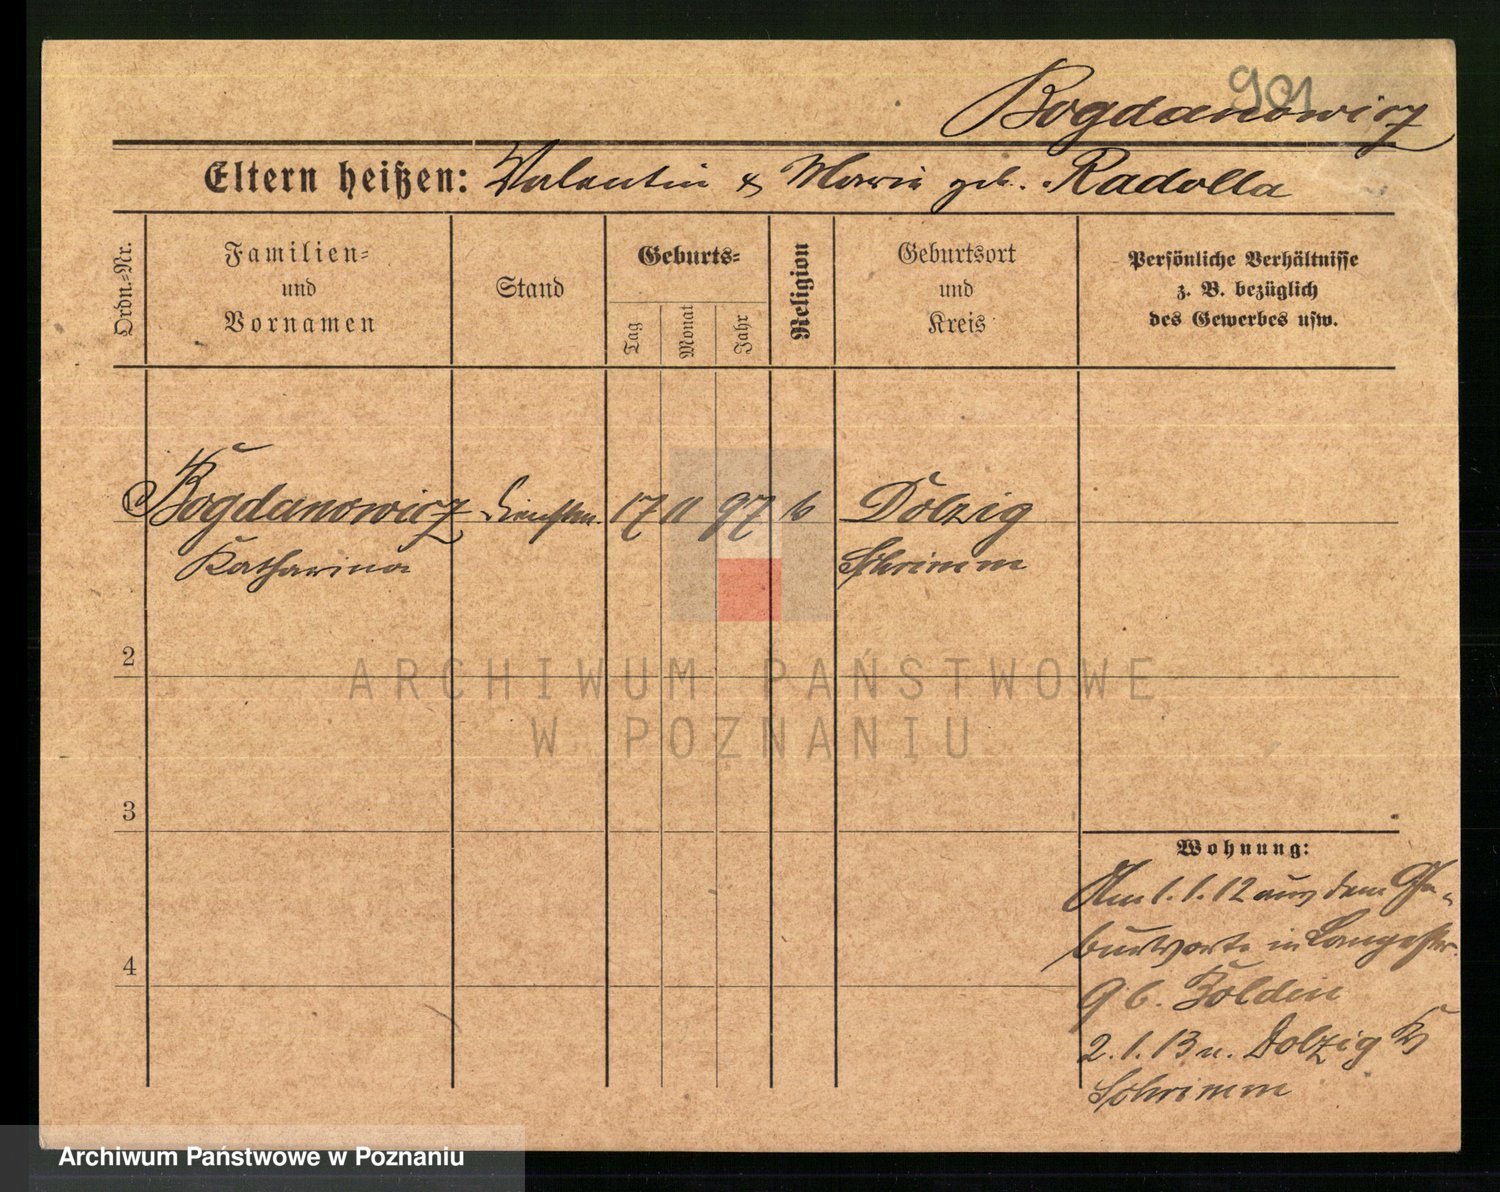 901
Bogdanowicz
Eltern heißen: Valentin & Marie geb. Radolla
Ordn.-Nr.
Familien-
und
Vornamen
Stand
Geburts-
Tag
Monat
Jahr
Religion
Geburtsort
und
Kreis
Persönliche Verhältnisse
z. B. bezüglich
des Gewerbes usw.
1 Bogdanowicz Dienstm. 17 11 97 k Dolzig
Katharina Schrimm
2
3
4
Wohnung:
Am 1.1.12 aus dem Ge-
burtsorte in Langestr.
9 b. Boldin
2.1.13 n. Dolzig Kr
Schrimm
ARCHIWUM PAŃSTWOWE
W POZNANIU
Archiwum Państwowe w Poznaniu